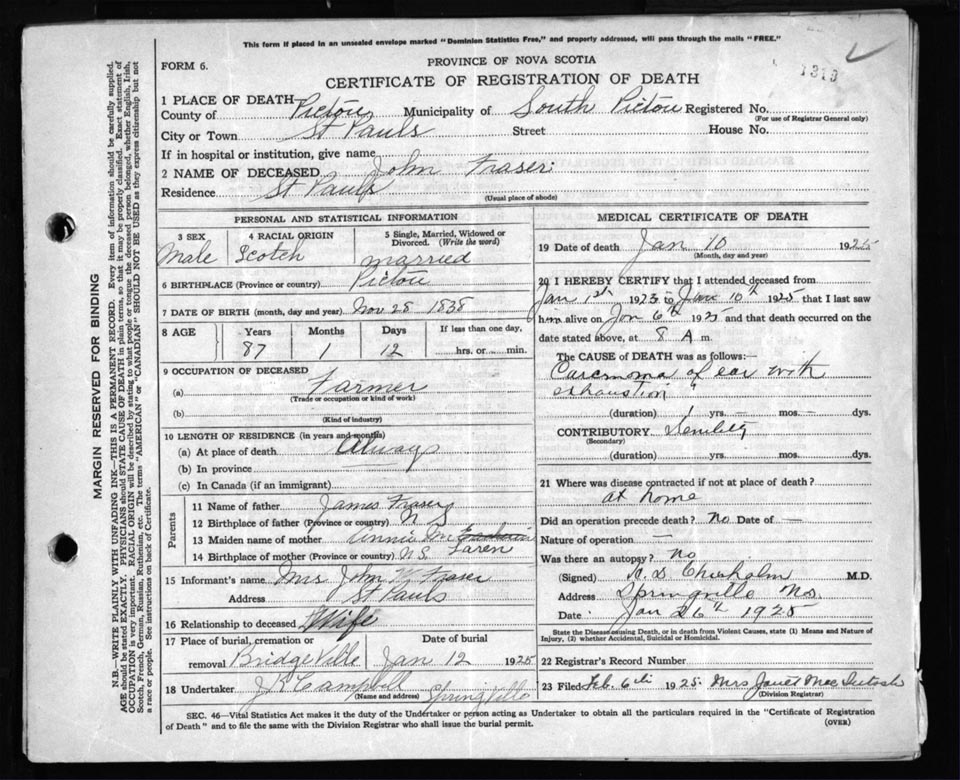 This form if placed in an unsealed envelope marked "Dominion Statistics Free," and properly addressed, will pass through the mails "FREE."
FORM 6.
PROVINCE OF NOVA SCOTIA
CERTIFICATE OF REGISTRATION OF DEATH
1319
1 PLACE OF DEATH
County of Pictou Municipality of South Pictou Registered No.
(For use of Registrar General only)
City or Town St Pauls Street House No.
If in hospital or institution, give name
2 NAME OF DECEASED John Fraser
Residence St Pauls
(Usual place of abode)
PERSONAL AND STATISTICAL INFORMATION
3 SEX Male
4 RACIAL ORIGIN Scotch
5 Single, Married, Widowed or Divorced. (Write the word) married
6 BIRTHPLACE (Province or country) Pictou
7 DATE OF BIRTH (month, day and year) Nov 28 1838
8 AGE Years Months Days If less than one day,
87 1 12 hrs. or min.
9 OCCUPATION OF DECEASED
(a) Farmer
(Trade or occupation or kind of work)
(b)
(Kind of industry)
10 LENGTH OF RESIDENCE (in years and months)
(a) At place of death Always
(b) In province
(c) In Canada (if an immigrant)
Parents
11 Name of father James Fraser
12 Birthplace of father (Province or country) N S
13 Maiden name of mother Annie Mc
Laren
14 Birthplace of mother (Province or country) N.S.
15 Informant's name Mrs John W Fraser
Address St Pauls
16 Relationship to deceased Wife
17 Place of burial, cremation or removal Bridgeville
Date of burial Jan 12 1925
18 Undertaker J K Campbell Springville
(Name and address)
MEDICAL CERTIFICATE OF DEATH
19 Date of death Jan 10 1925
(Month, day and year)
20 I HEREBY CERTIFY that I attended deceased from
Jan 1st 1923 to Jan 10th 1925 that I last saw
him alive on Jan 6th 1925 and that death occurred on the
date stated above, at 8 A m.
The CAUSE of DEATH was as follows:
Carcinoma of ear with
exhaustion
(duration) 1 yrs. — mos. — dys.
CONTRIBUTORY Senility
(Secondary)
(duration) yrs. mos. dys.
21 Where was disease contracted if not at place of death?
at home
Did an operation precede death? No Date of —
Nature of operation —
Was there an autopsy? No
(Signed) Chisholm M.D.
Address Springville N.S.
Date Jan 26th 1925
State the Disease causing Death, or in death from Violent Causes, state (1) Means and Nature of
Injury, (2) whether Accidental, Suicidal or Homicidal.
22 Registrar's Record Number
23 Filed Feb. 6th 1925 Mrs Janet MacIntosh
(Division Registrar)
SEC. 46—Vital Statistics Act makes it the duty of the Undertaker or person acting as Undertaker to obtain all the particulars required in the "Certificate of Registration
of Death" and to file the same with the Division Registrar who shall issue the burial permit.
(OVER)
MARGIN RESERVED FOR BINDING
N.B.—WRITE PLAINLY WITH UNFADING INK—THIS IS A PERMANENT RECORD. Every item of information should be carefully supplied.
AGE should be stated EXACTLY. PHYSICIANS should STATE CAUSE OF DEATH in plain terms, so that it may be properly classified. Exact statement of
OCCUPATION is very important. RACIAL ORIGIN will be described by stating to what people or tongue the deceased person belonged, whether English, Irish,
Scotch, French, German, Russian, Ruthenian, etc. The terms "AMERICAN" or "CANADIAN" SHOULD NOT BE USED as they express citizenship but not
a race or people. See instructions on back of Certificate.